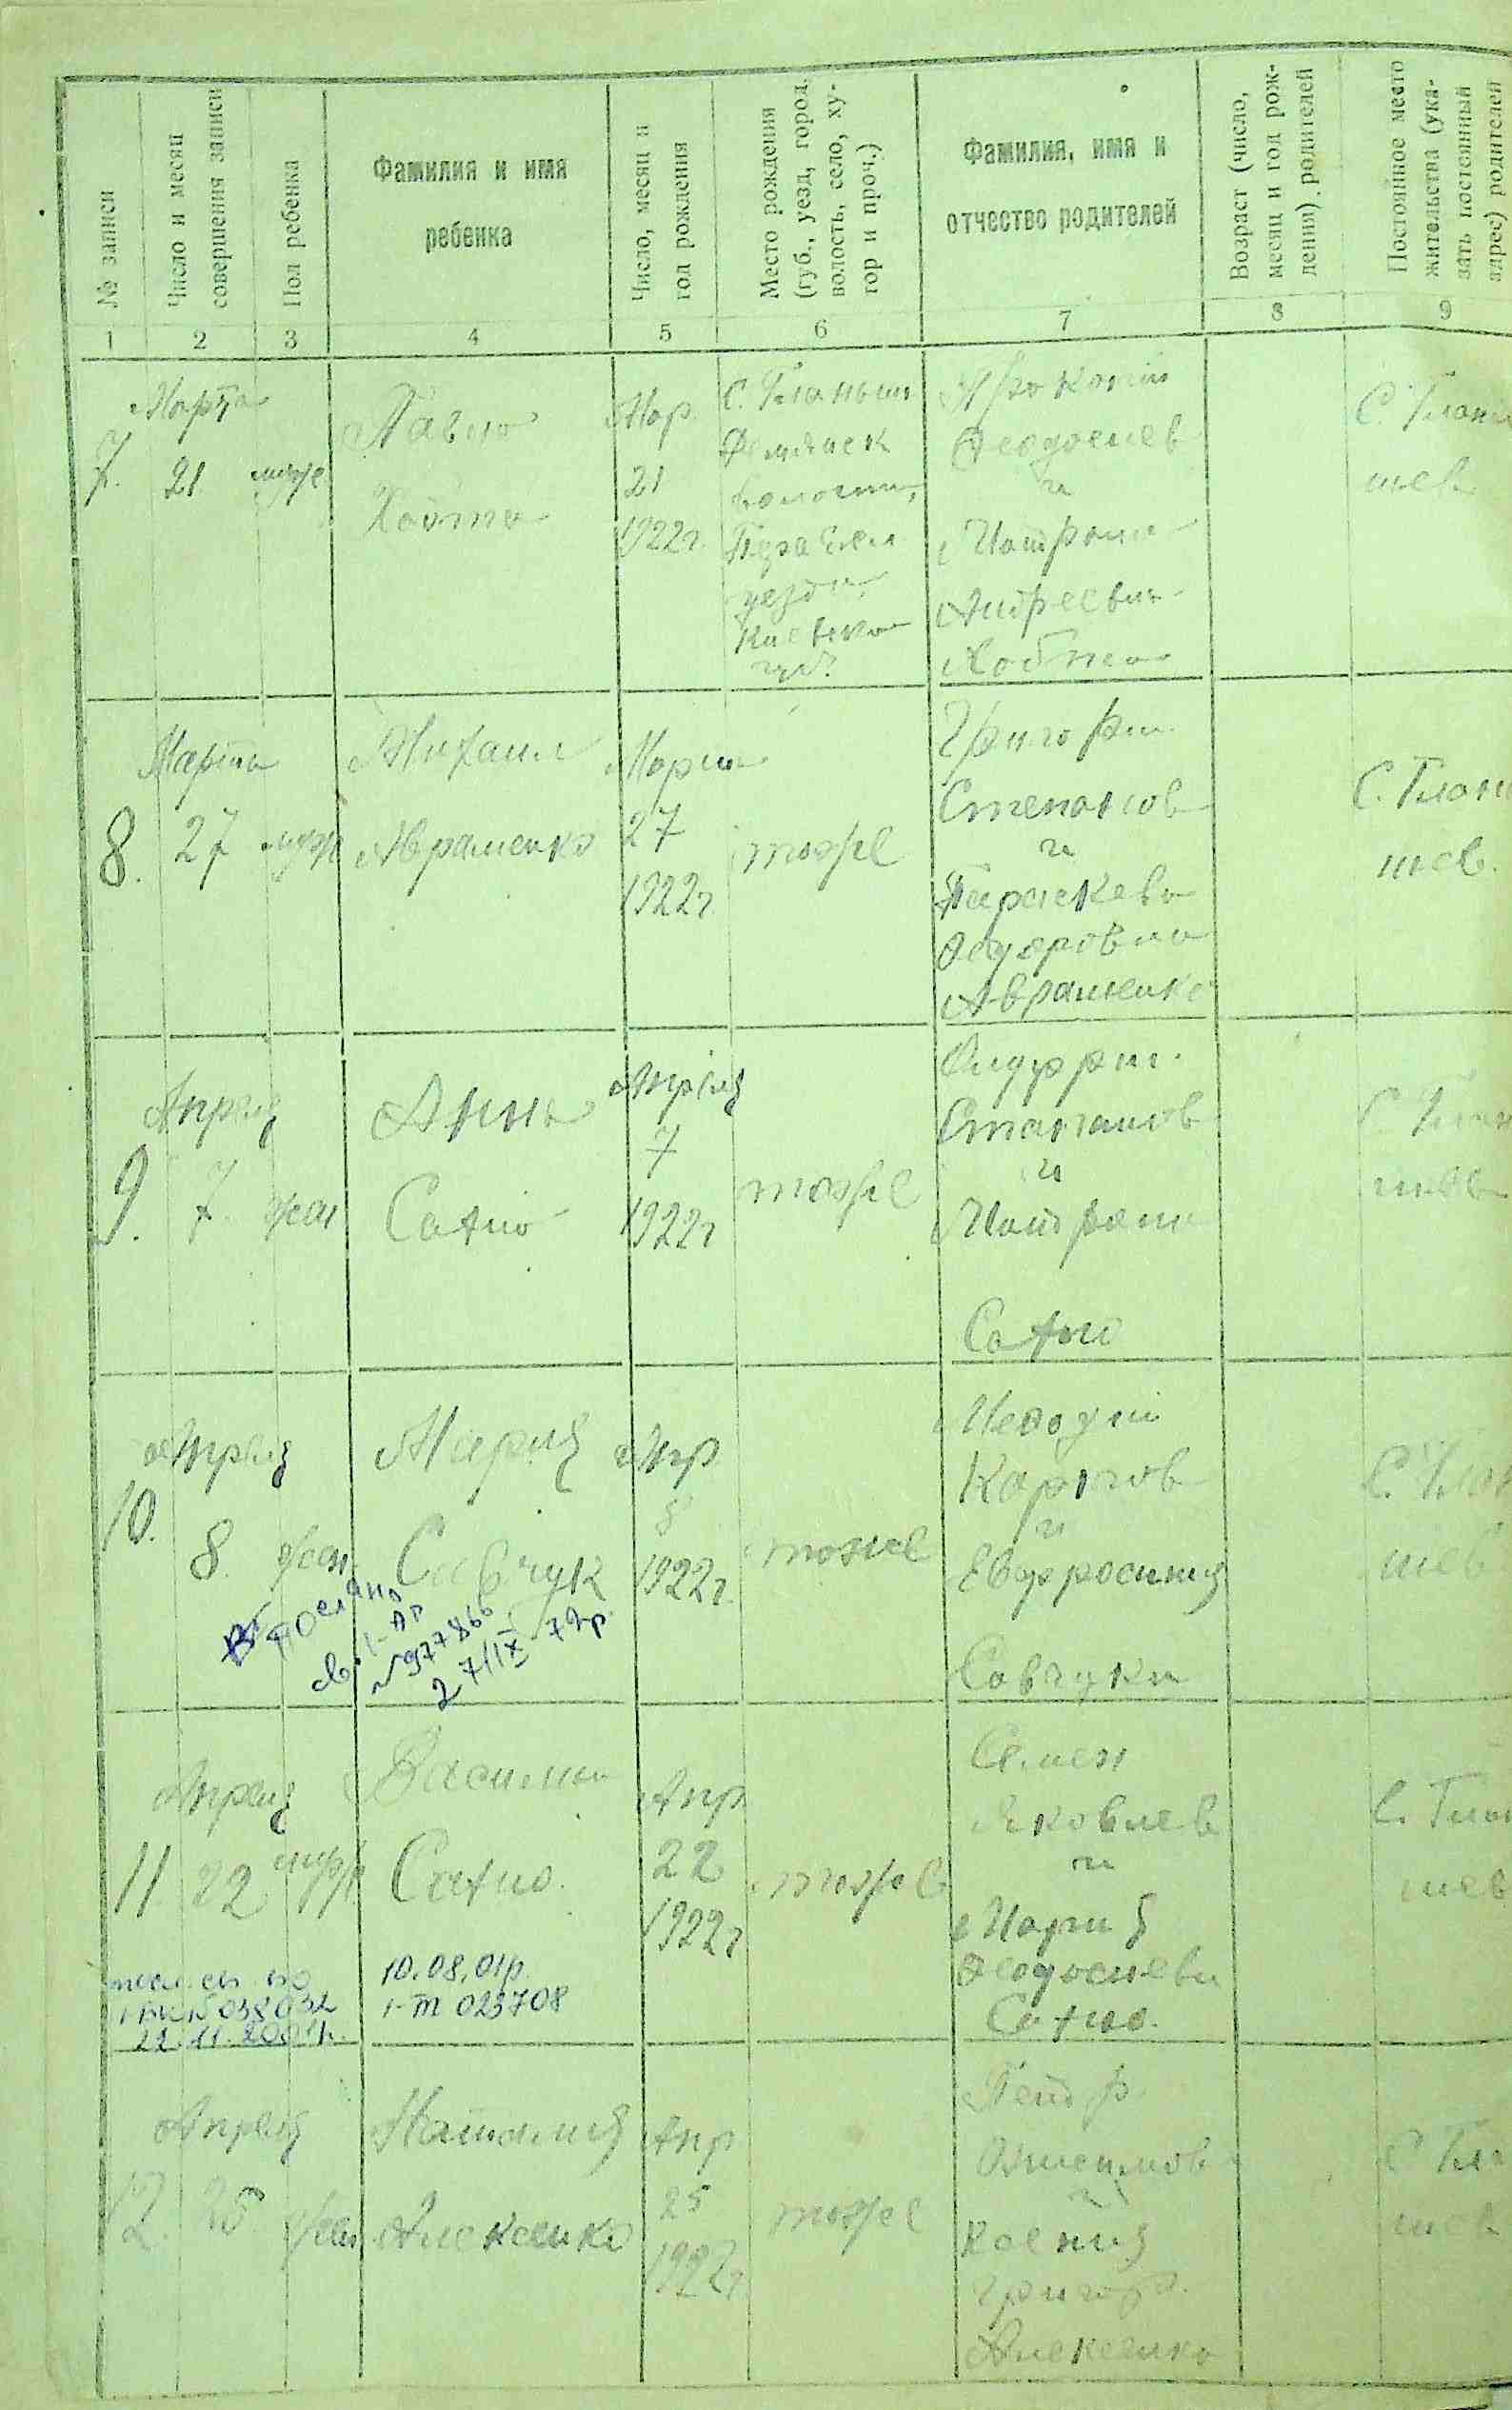 № записи
Число и месяц
совершения записи
Пол ребенка
Фамилия и имя
ребенка
Число, месяц и
год рождения
Место рождения
(губ., уезд, город,
волость, село, ху-
тор и проч.)
Фамилия, имя и
отчество родителей
Возраст (число,
месяц и год рож-
дения) родителей
Постоянное место
жительства (ука-
зать постоянный
адрес) родителей
1 2 3 4 5 6 7 8 9
7.
Марта
21
муж
Павло
Хобта
Мар.
21
1922г.
С.
волости,
уезда,
Киевско
губ.
Прокопий
Феодосиев
и
Матрона
Андреевна
Хобта
С.
шев
8.
Марта
27
муж
Михаил
Авраменко
Марта
27
1922г
тоже
Григорий
Степанов
и
Параскева
Федоровна
Авраменко
С.
шев.
9.
Апреля
7.
жен
Анна
Апреля
7
1922г
тоже
и
Матрона
С.
шев
10.
Апреля
8.
жен.
Мария
Савчук
Апр
8
1922г.
тоже
Карпов
и
Евфросиния
Савчуки
С.
шев
послано
св. I-АП
№977866
27/IX-72р.
11
Апреля
22
муж
Василий
Апр
22
1922г
тоже
Семен
Яковлев
и
Мария
Феодосиева
С.
шев
038032
22.11.2001р.
10.08.01р.
023708
12.
Апреля
25
жен
Наталия
Алексенко
Апр
25
1922г
тоже
Петр
Онисимов
и
Ксения
Григор.
Алексенко
С.
шев